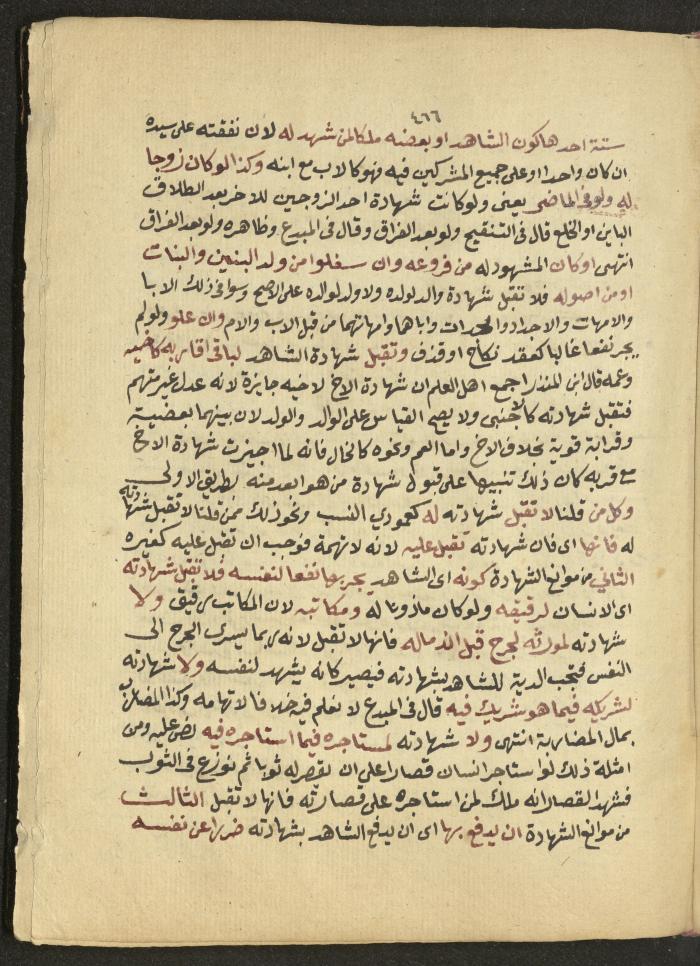 ٤٦٦
ستة احدها كون الشاهد او بعضه ملكا لمن شهد له لان نفقته على سيده
ان كان واحدا او على جميع المشركين فيه فهو كالاب مع ابنه وكذا لو كان زوجا
له ولو في الماضي يعني ولو كانت شهادة احد الزوجين للاخر بعد الطلاق
الباين او الخلع قال في التنقيح ولو بعد الفراق وقال في المبدع وظاهره ولو بعد الفراق
انتهى او كان المشهود له من فروعه وان سفلوا من ولد البنين والبنات
او من اصوله فلا تقبل شهادة والد لولده ولا ولد لوالده على الاصح وسوا في ذلك الابا
والامهات والاجداد والجدات واباها وامهاتهما من قبل الاب والام وان علو ولو لم
يجر نفعا غالبا كعقد نكاح او قذف وتقبل شهادة الشاهد لباقي اقاربه كاخيه
وعمه قال ابن المنذر اجمع اهل العلم ان شهادة الاخ لاخيه جايزة لانه عدل غير متهم
فتقبل شهادته كالاجنبي ولا يصح القياس على الوالد والولد لان بينهما بعضية
وقرابة قوية بخلاف الاخ واما العم ونحوه كالخال فانه لما اجيزت شهادة الاخ
مع قربه كان ذلك تنبيها على قبول شهادة من هو ابعد منه بطريق الاولى
وكل من قلنا لا تقبل شهادته له كعمودي النسب ونحو ذلك ممن قلنا لا تقبل شهادته
له فانها اى فان شهادته تقبل عليه لانه لا تهمة فوجب ان تقبل عليه كغيره
الثاني من موانع الشهادة كونه اى الشاهد يجر بها نفعا لنفسه فلا تقبل شهادته
اى الانسان لرقيقه ولو كان ماذونا له ومكاتبه لان المكاتب رقيق ولا
شهادته لمورثه لجرح قبل اندماله فانها لا تقبل لانه ربما يسرى الجرح الى
النفس فتجب الدية للشاهد بشهادته فيصير كانه يشهد لنفسه ولا شهادته
لشريكه فيما هو شريك فيه قال في المبدع لا نعلم فيه خلافا لاتهامه وكذا المضارب
بمال المضاربة انتهى ولا شهادته لمستاجره فيما استاجره فيه نص عليه ومن
امثلة ذلك لو استاجر انسان قصارا على ان يقصر له ثوبا ثم نوزع في الثوب
فشهد القصار انه ملك لمن استاجره على قصارته فانها لا تقبل الثالث
من موانع الشهادة ان يدفع بها اى ان يدفع الشاهد بشهادته ضررا عن نفسه